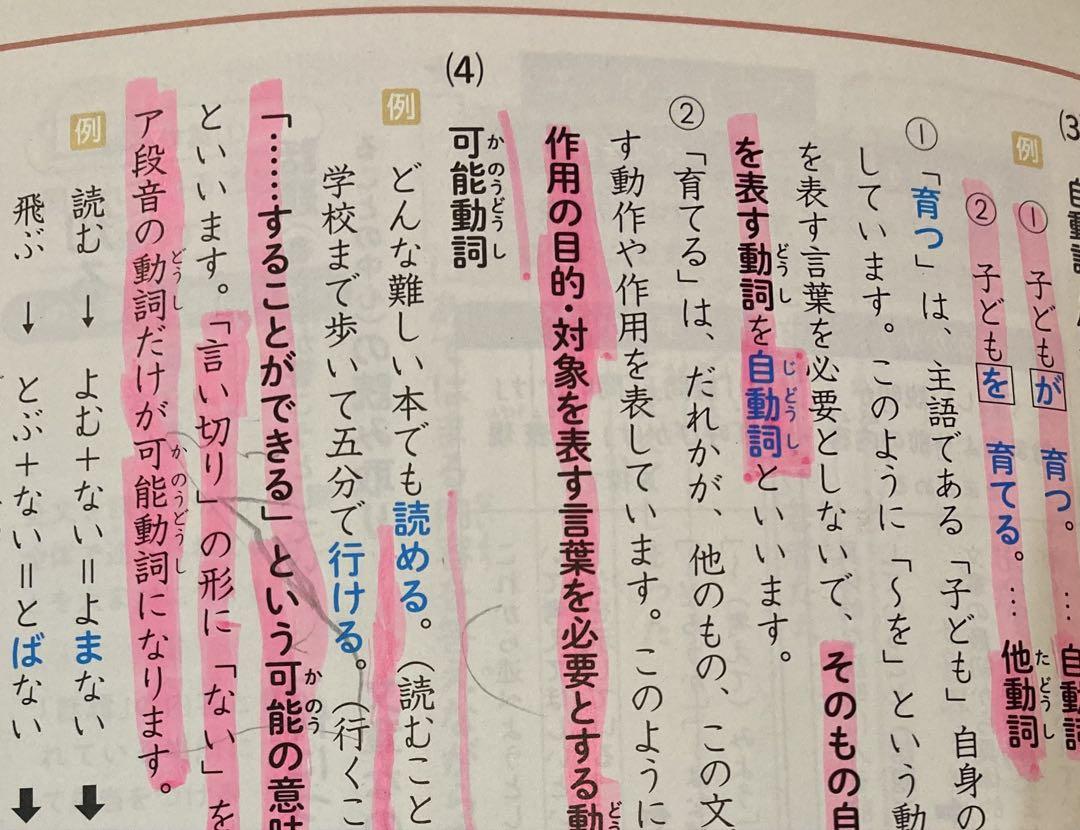 自動詞
例
① 子どもが 育つ。… 自動詞
② 子どもを 育てる。… 他動詞
① 「育つ」は、主語である「子ども」自身の
しています。このように「〜を」という動
を表す言葉を必要としないで、そのもの自
を表す動詞を自動詞といいます。
② 「育てる」は、だれかが、他のもの、この文
す動作や作用を表しています。このように
作用の目的・対象を表す言葉を必要とする動
(4) 可能動詞
例 どんな難しい本でも読める。(読むこと
学校まで歩いて五分で行ける。(行くこ
「……することができる」という可能の意味
といいます。「言い切り」の形に「ない」を
ア段音の動詞だけが可能動詞になります。
例 読む → よむ+ない=よまない
飛ぶ → とぶ+ない=とばない